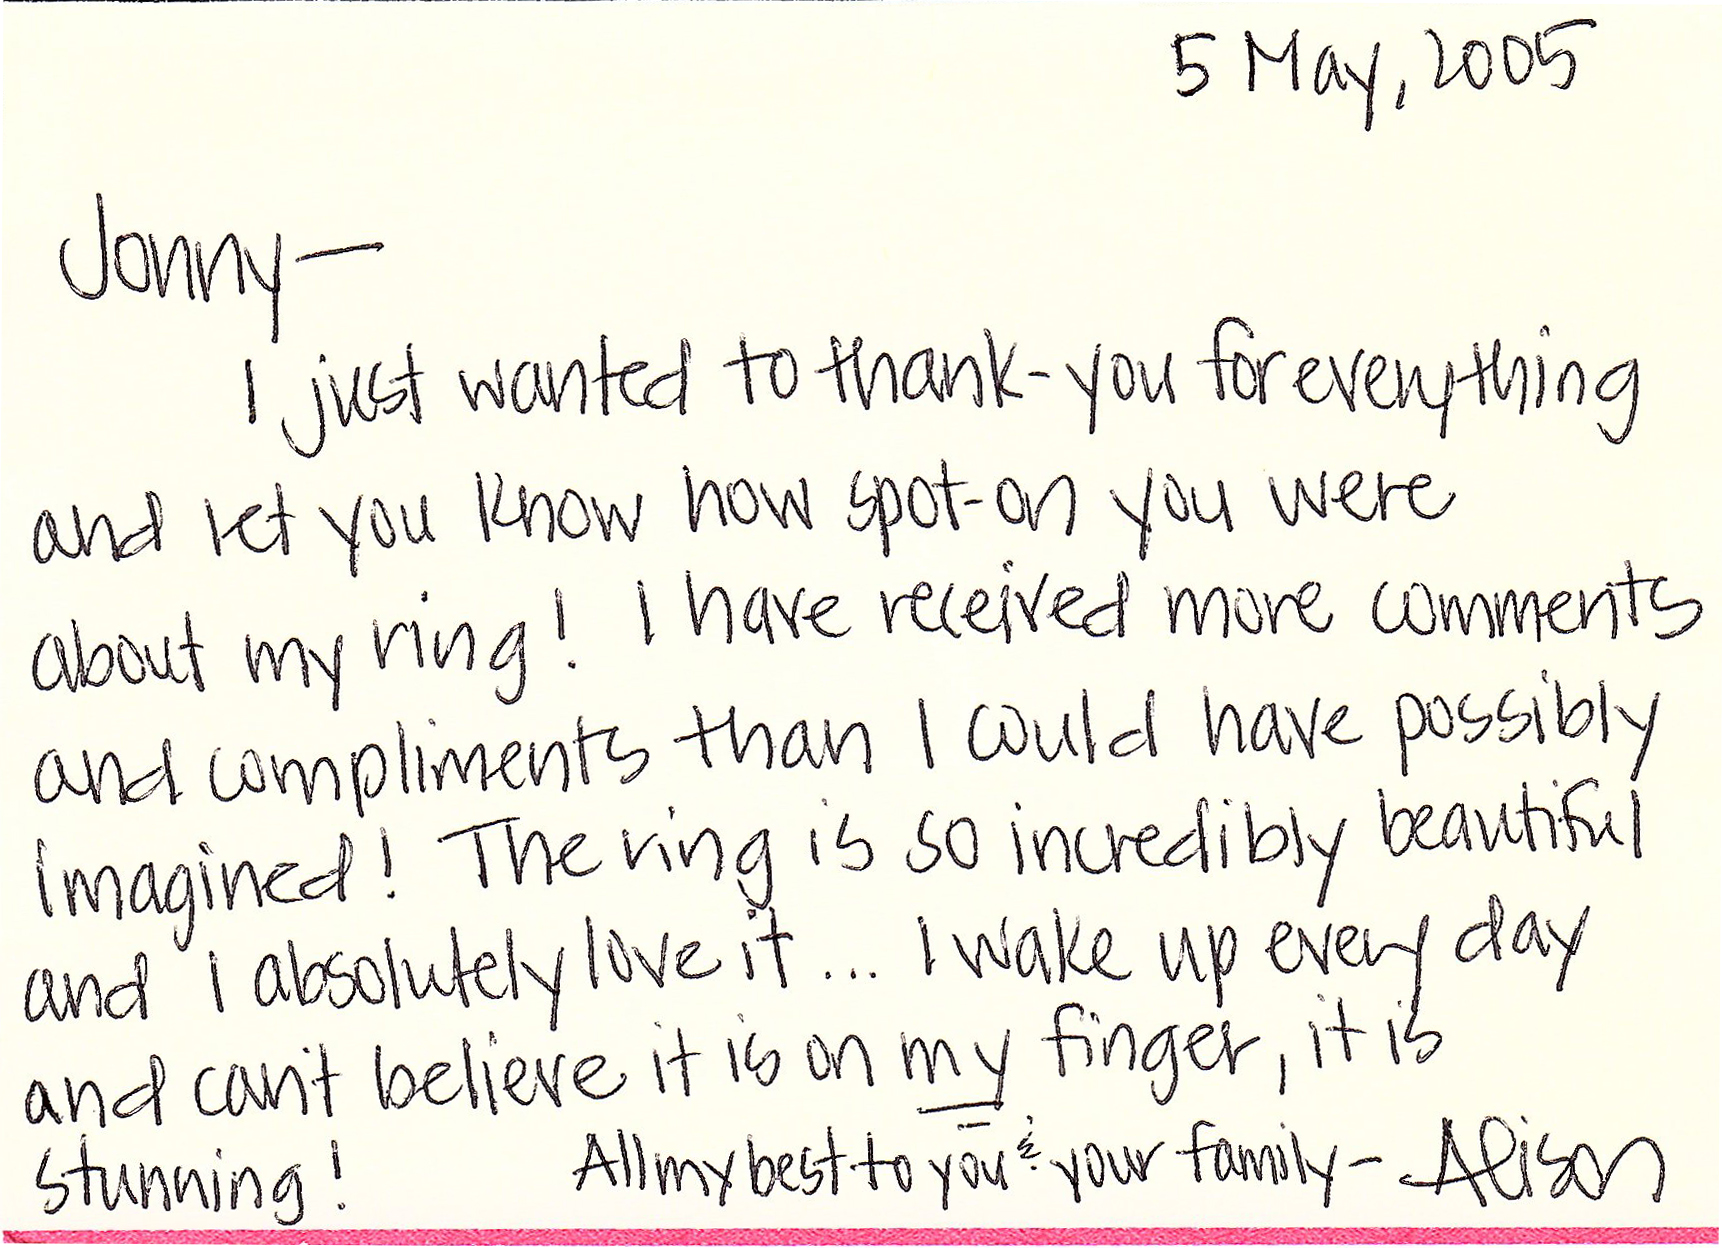 5 May, 2005
Jonny—
I just wanted to thank-you for everything
and let you know how spot-on you were
about my ring! I have received more comments
and compliments than I could have possibly
imagined! The ring is so incredibly beautiful
and I absolutely love it... I wake up every day
and can't believe it is on my finger, it is
stunning! All my best to you & your family- Alison